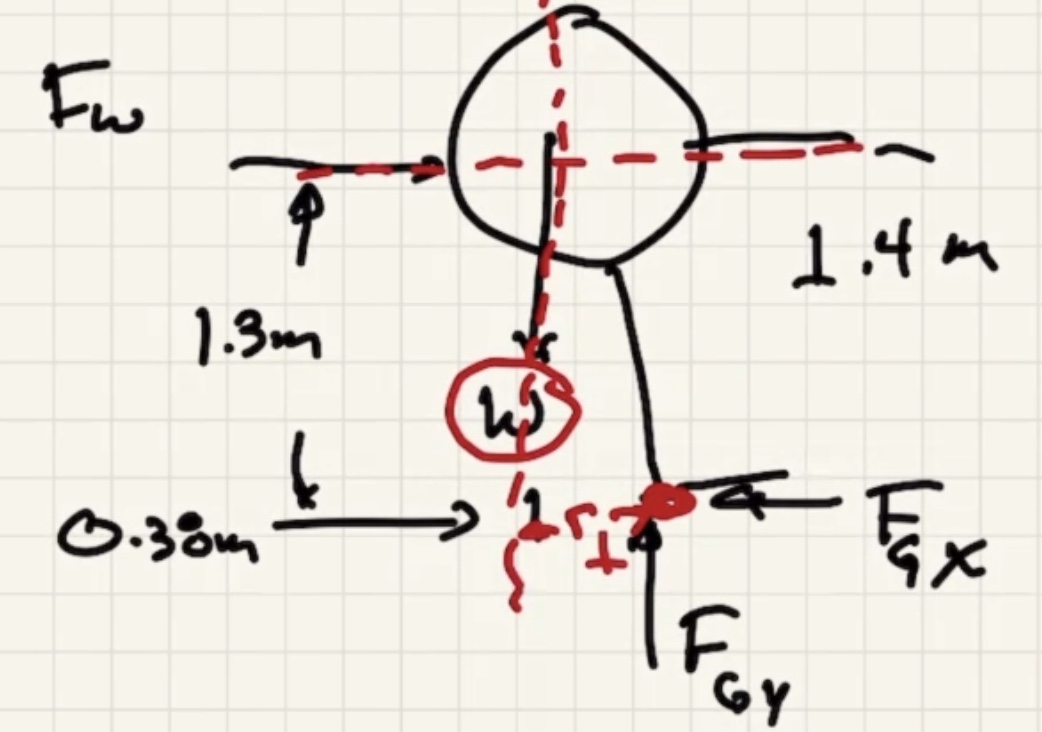 Fw
1.4 m
1.3m
W
0.30m
r⊥
FGx
FGy